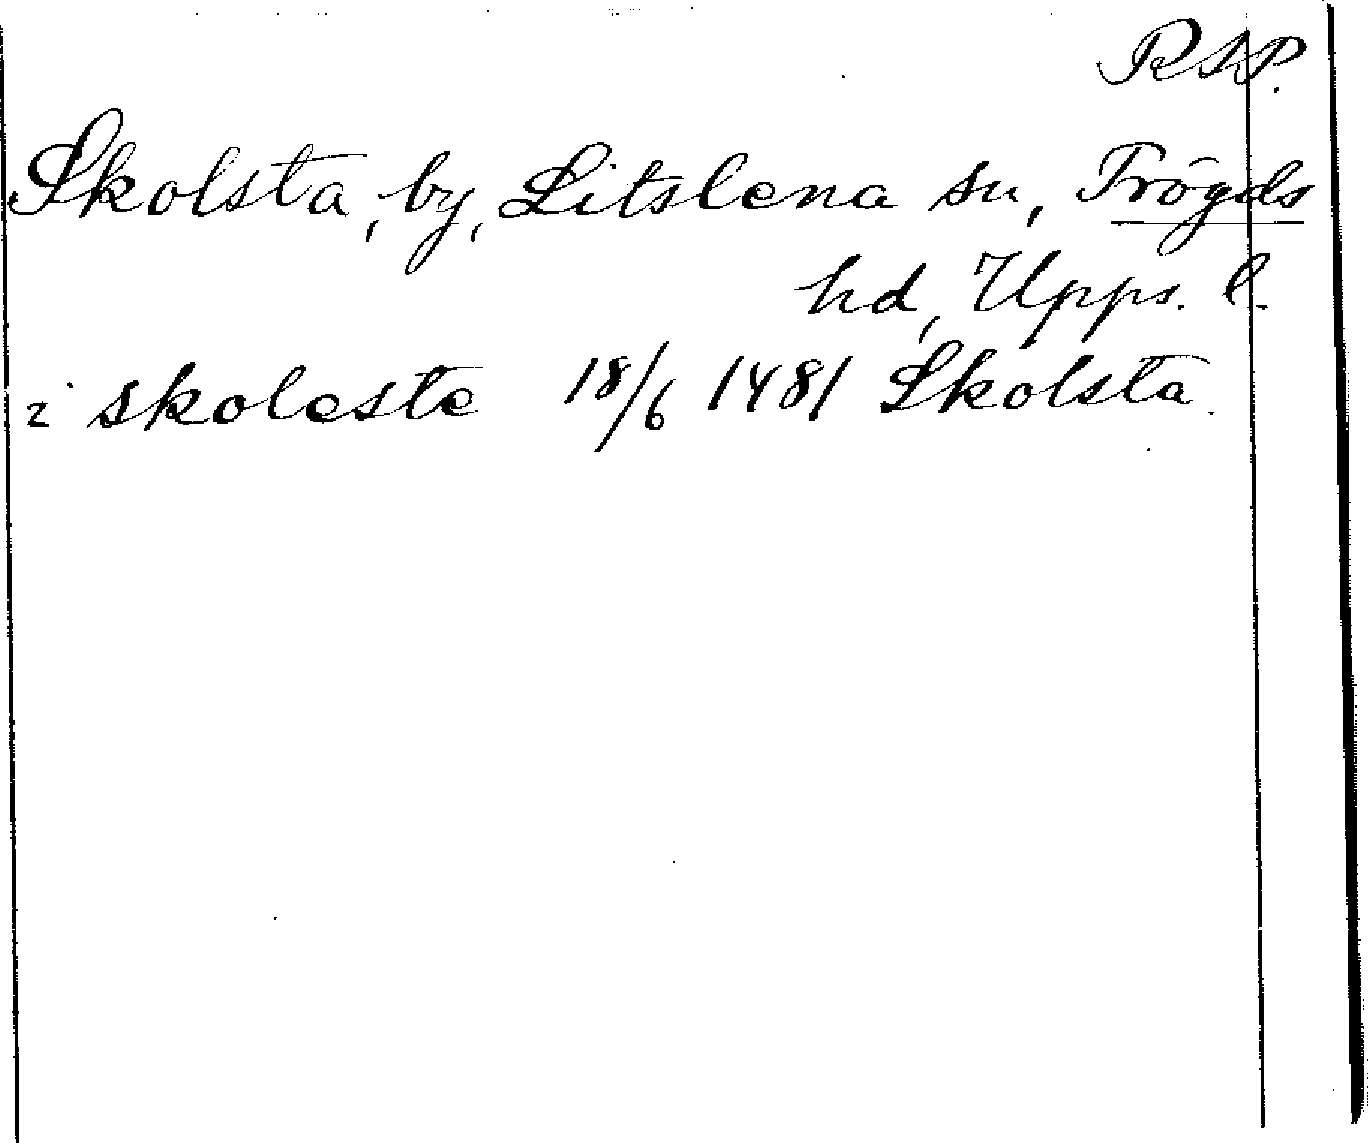 RAP.
Skolsta, by, Litslena sn, Trögds
hd, Upps. l.
i skoleste 18/6 1481 Skolsta.